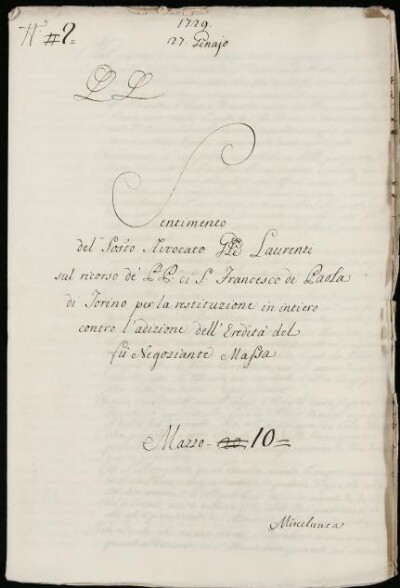 1729.
27. Genajo
N. # 2=
LL
Sentimento
del Sosto Avvocato Gle Laurenti
sul ricorso de' P.P. di S. Francesco di Paola
di Torino per la restituzione in intiero
contro l'adizione dell'Eredità del
fù Negoziante Massa
Mazzo - 10=
Miscelanea